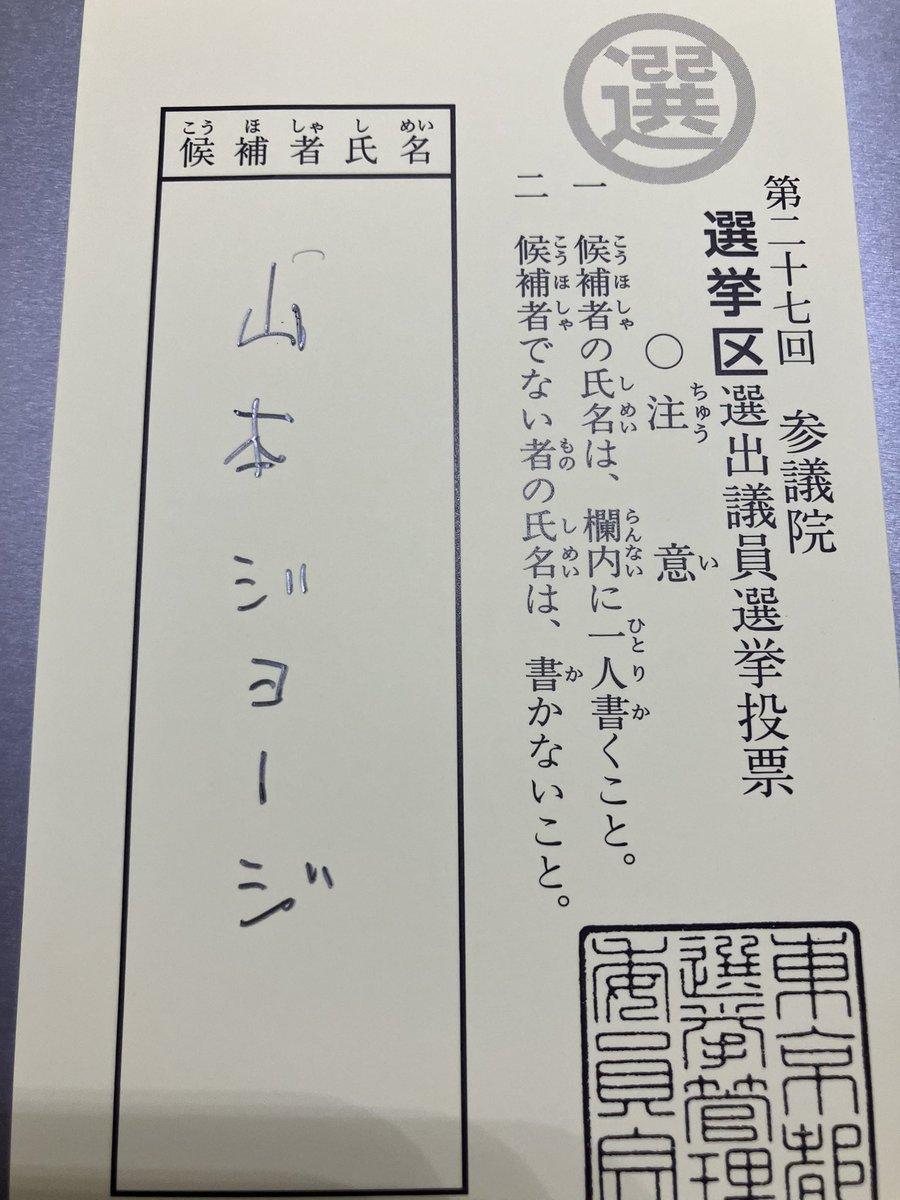 選
第二十七回 参議院
選挙区選出議員選挙投票
○注意
一 候補者の氏名は、欄内に一人書くこと。
二 候補者でない者の氏名は、書かないこと。
候補者氏名
山本ジョージ
東京都
選挙管理
委員会